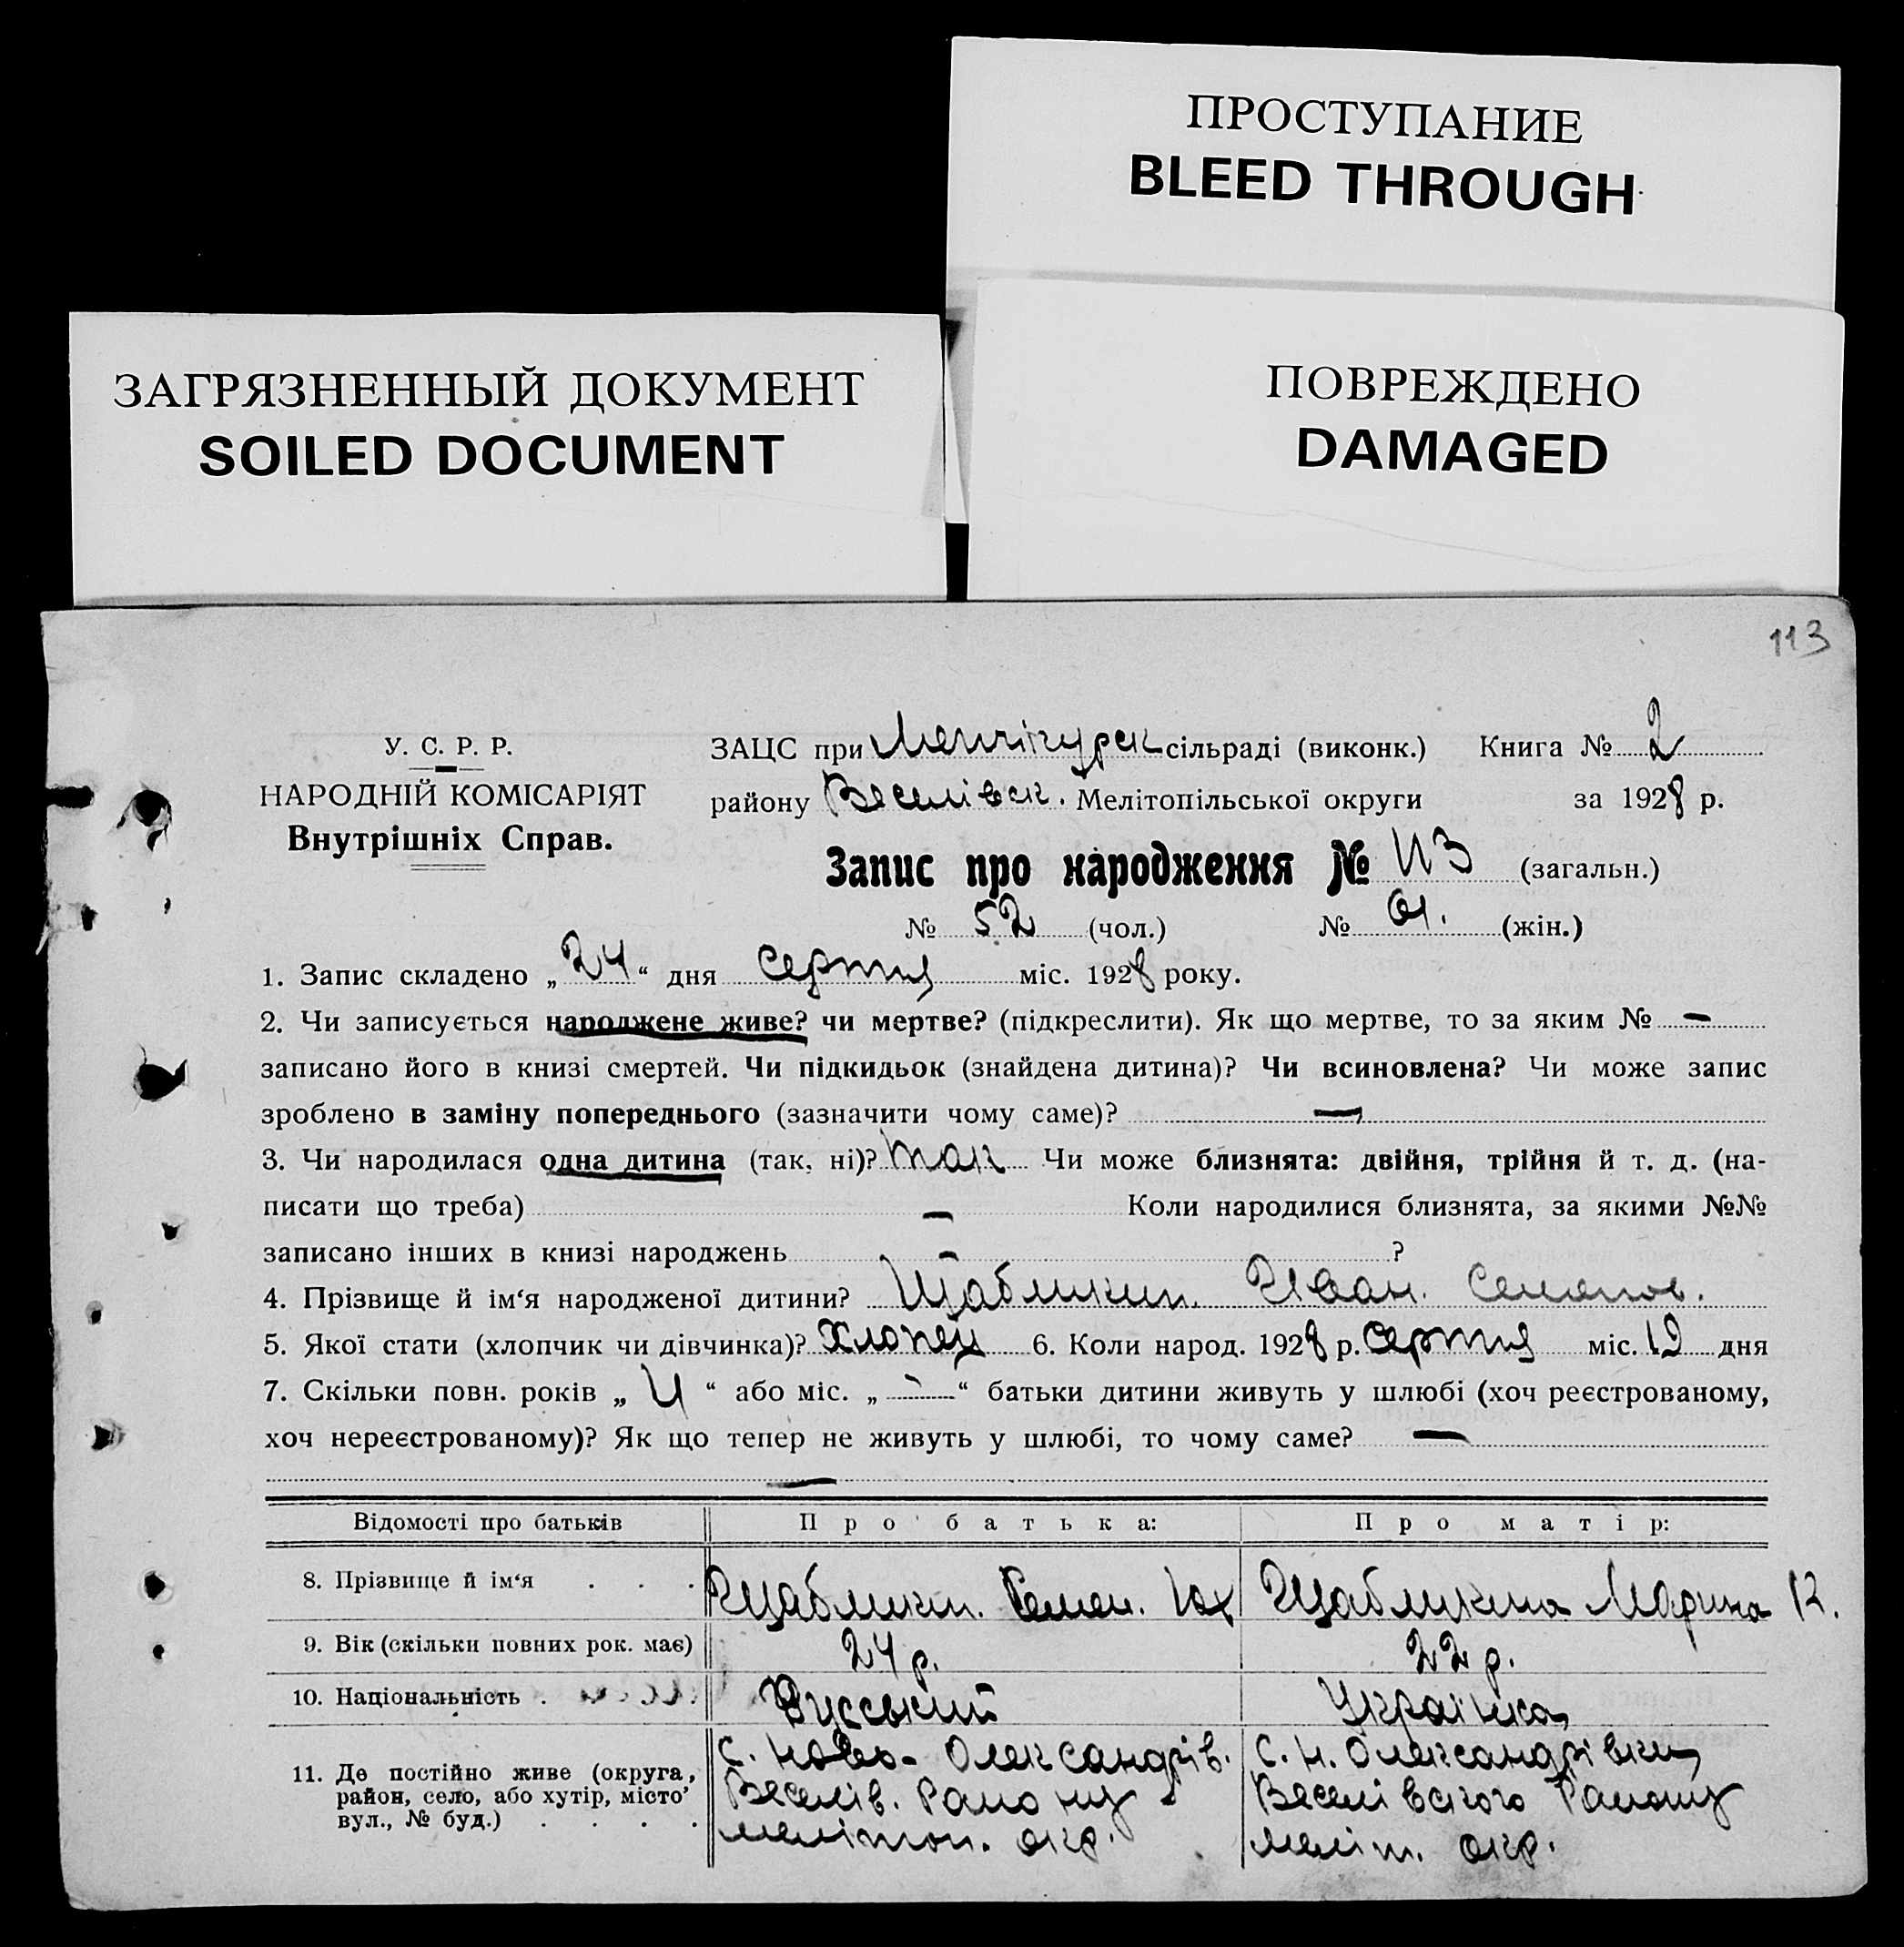 ПРОСТУПАНИЕ
BLEED THROUGH
ЗАГРЯЗНЕННЫЙ ДОКУМЕНТ
SOILED DOCUMENT
ПОВРЕЖДЕНО
DAMAGED
113
У. С. Р. Р.
НАРОДНІЙ КОМІСАРІЯТ
Внутрішніх Справ.
ЗАЦС при Менчікурск сільраді (виконк.) Книга № 2
району Веселівск. Мелітопільської округи за 1928 р.
Запис про народження № 113 (загальн.)
№ 52 (чол.) № 61. (жін.)
1. Запис складено „24“ дня серпня міс. 1928 року.
2. Чи записується народжене живе? чи мертве? (підкреслити). Як що мертве, то за яким № —
записано його в книзі смертей. Чи підкидьок (знайдена дитина)? Чи всиновлена? Чи може запис
зроблено в заміну попереднього (зазначити чому саме)? —
3. Чи народилася одна дитина (так, ні)? так Чи може близнята: двійня, трійня й т. д. (на-
писати що треба) — Коли народилися близнята, за якими №№
записано інших в книзі народжень — ?
4. Прізвище й ім‘я народженої дитини? Щабликин. Иван. Семенов.
5. Якої стати (хлопчик чи дівчинка)? Хлопец 6. Коли народ. 1928 р. Серпня міс. 12 дня
7. Скільки повн. років „ 4 “ або міс. „ - “ батьки дитини живуть у шлюбі (хоч реєстрованому,
хоч нереєстрованому)? Як що тепер не живуть у шлюбі, то чому саме? —
—
Відомості про батьків Про батька: Про матір:
8. Прізвище й ім‘я . . . Щабликин. Семен. Щабликина Марина К.
9. Вік (скільки повних рок. має) 24 р. 22 р.
10. Національність . Русський Українка
11. Де постійно живе (округа, район, село, або хутір, місто вул., № буд.) . . . .
с. Ново-Олександрів. с. Н. Олександрівки
Веселів. Району Веселівского Району
мелітоп. окр. меліт. окр.